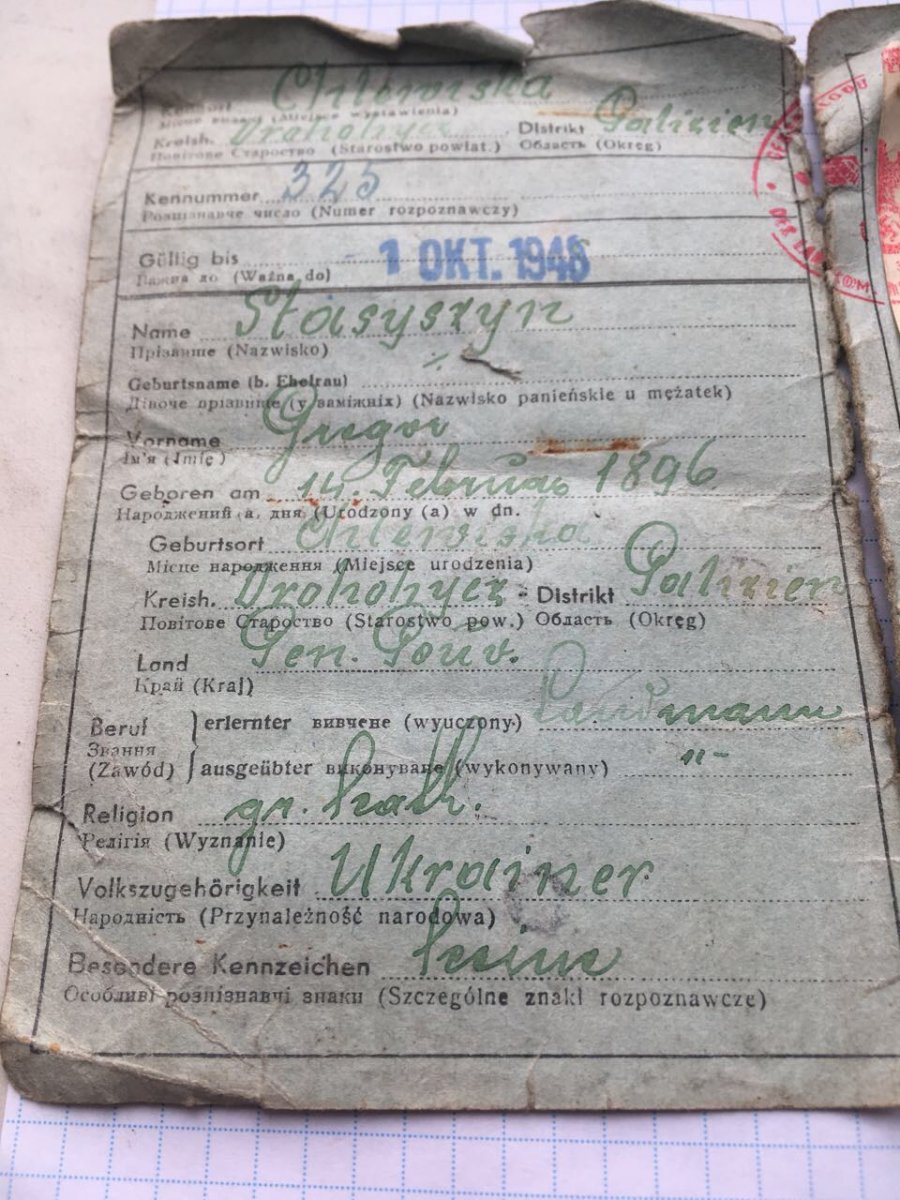 Kennort Chlewiska
Місце видачі (Miejsce wystawienia)
Kreish. Drohobycz Distrikt Galizien
Повітове Староство (Starostwo powiat.) Область (Okręg)
Kennummer 325
Розпізнавче число (Numer rozpoznawczy)
Gültig bis - 1 OKT. 1948
Важна до (Ważna do)
Name Stasyszyn
Прізвище (Nazwisko)
Geburtsname (b. Ehefrau)
Дівоче прізвище (у заміжніх) (Nazwisko panieńskie u mężatek)
Vorname Gregor
Ім'я (Imię)
Geboren am 14. Februar 1896
Народжений а. дня (Urodzony (a) w dn.
Geburtsort Chlewiska
Місце народження (Miejsce urodzenia)
Kreish. Drohobycz - Distrikt Galizien
Повітове Староство (Starostwo pow.) Область (Okręg)
Land Gen. Gouv.
Край (Kraj)
Beruf erlernter вивчене (wyuczony) Landmann
Звання
(Zawód) ausgeübter виконуване (wykonywany) "-
Religion gr. kath.
Релігія (Wyznanie)
Volkszugehörigkeit Ukrainer
Народність (Przynależność narodowa)
Besondere Kennzeichen keine
Особливі розпізнавчі знаки (Szczególne znaki rozpoznawcze)